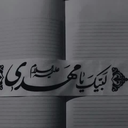 لبیک یا مهدی علیه السلام